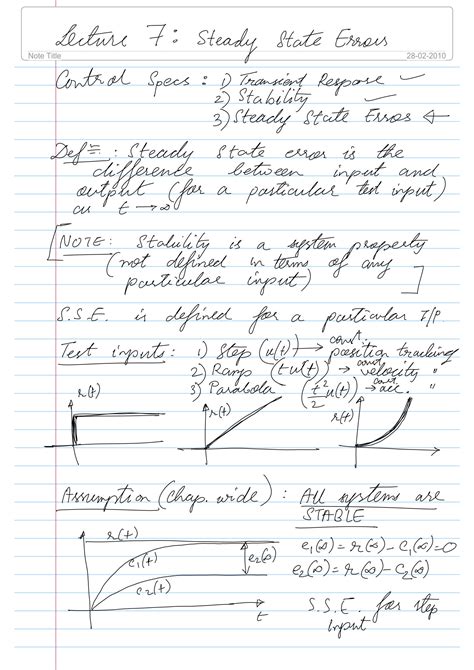 Lecture 7: Steady State Errors
Note Title
28-02-2010
Control Specs: 1) Transient Response ✓
2) Stability ✓
3) Steady State Error ←
Defn: Steady State error is the
difference between input and
output (for a particular test input)
as t → ∞
[NOTE: Stability is a system property
(not defined in terms of any
particular input)]
S.S.E. is defined for a particular I/P
Test inputs: 1) Step (u(t)) → const. position tracking
2) Ramp (tu(t)) → const. velocity "
3) Parabola (t²/2 u(t)) → const. acc. "
r(t)
r(t)
r(t)
Assumption (chap. wide): All systems are
STABLE
r(t)
c₁(t)
c₂(t)
e₂(∞)
t
e₁(∞) = r(∞) - c₁(∞) = 0
e₂(∞) = r(∞) - c₂(∞)
S.S.E. for step
Input